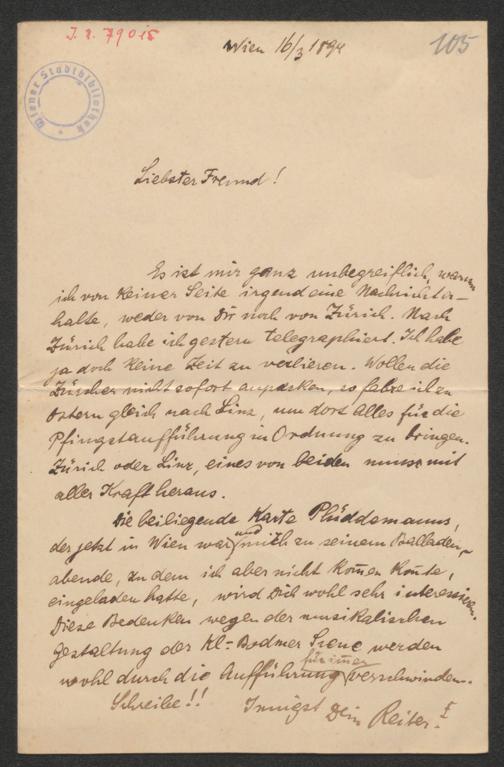 J. N. 79015
105
Wiener Stadtbibliothek
Wien 16/3 1894
Liebster Freund!
Es ist mir ganz unbegreiflich, warum
ich von keiner Seite irgend eine Nachricht er-
halte, weder von Dir noch von Zürich. Nach
Zürich habe ich gestern telegraphiert. Ich habe
ja doch keine Zeit zu verlieren. Wollen die
Zürcher nicht sofort anpacken, so fahre ich zu
Ostern gleich nach Linz, um dort Alles für die
Pfingstaufführung in Ordnung zu bringen.
Zürich oder Linz, eines von beiden muss mit
aller Kraft heraus.
Die beiliegende Karte Plüddemanns,
der jetzt in Wien war und mich zu seinem Balladen-
abende, zu dem ich aber nicht komen konte,
eingeladen hatte, wird Dich wohl sehr interessieren.
Diese Bedenken wegen der musikalischen
Gestaltung der Kl-Bodmer Scene werden
wohl durch die Aufführung für imer verschwinden.
Schreibe!! Innigst Dein Reiter.